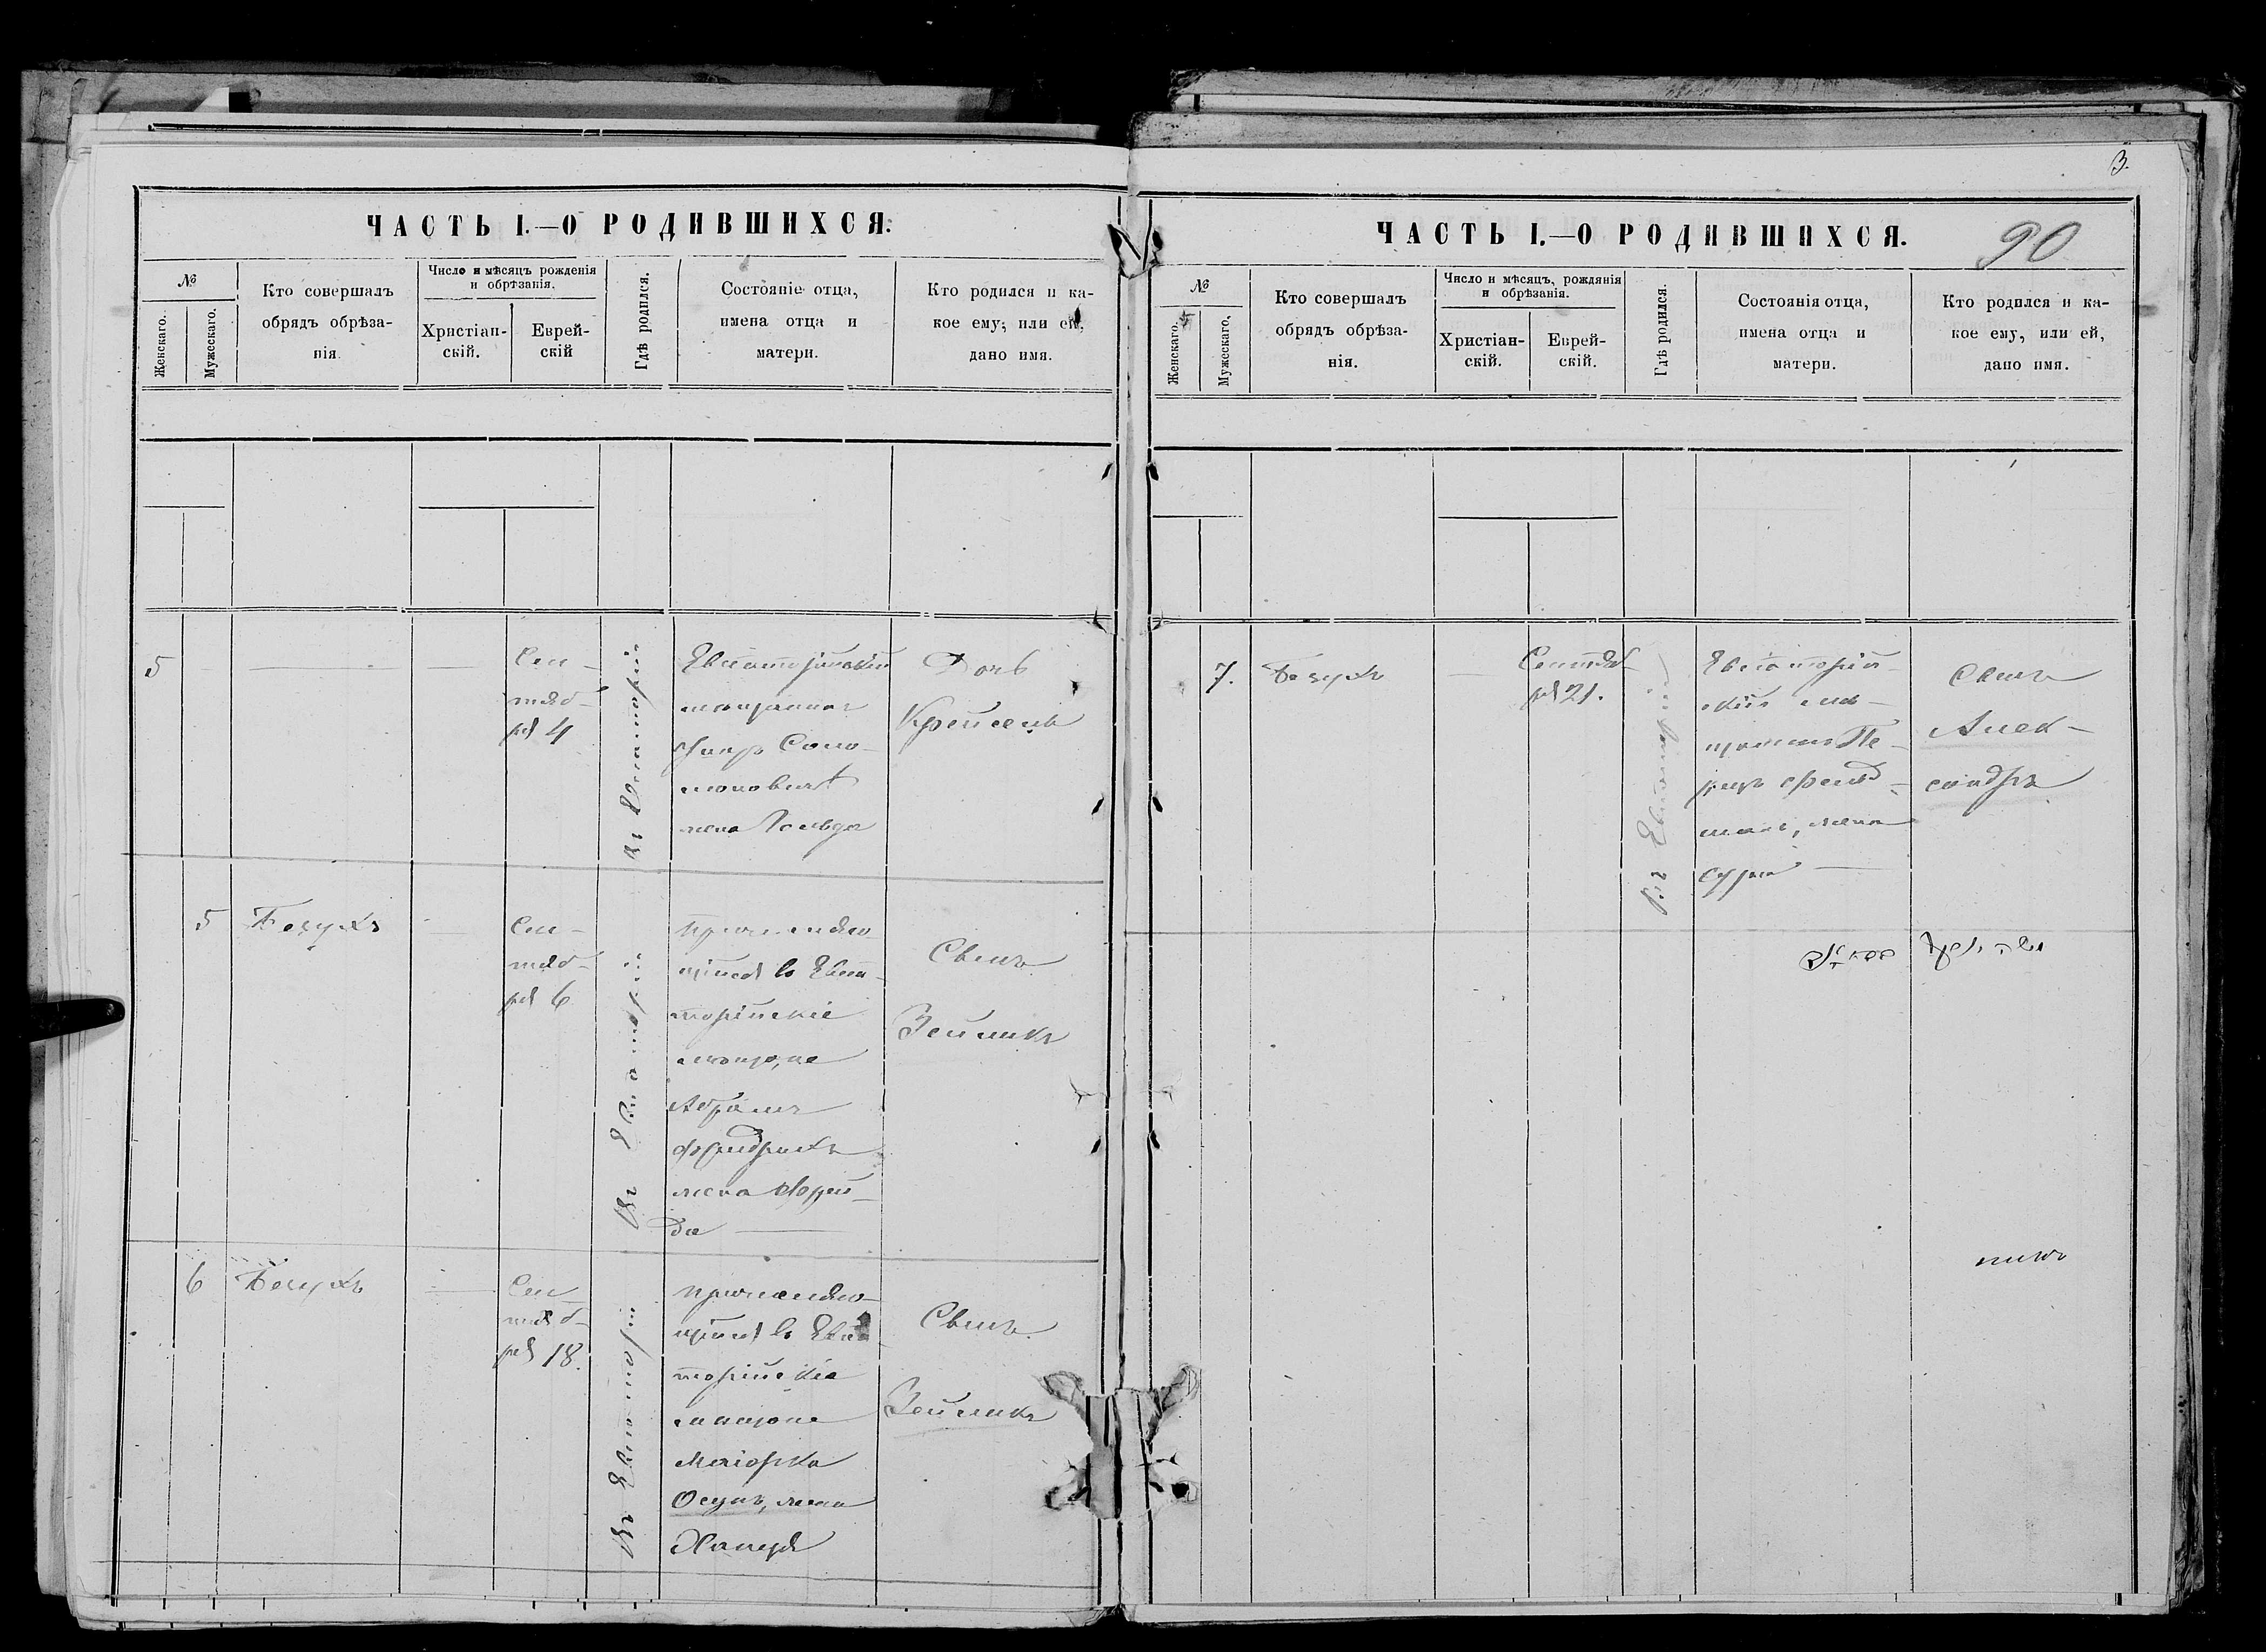 ЧАСТЬ I.—О РОДИВШИХСЯ.
№
Женскаго.
Мужескаго.
Кто совершалъ
обрядъ обрѣза-
нія.
Число и мѣсяцъ рожденія
и обрѣзанія.
Христіан-
скій.
Еврей-
скій
Гдѣ родился.
Состояніе отца,
имена отца и
матери.
Кто родился и ка-
кое ему, или ей,
дано имя.
5
Сен-
тяб-
ря 4
Въ Евпаторіи
Евпаторійскій
мѣщанинъ
Соло-
моновичъ
жена Гольда
Дочь
Крейсель
5
Безухъ
Сен-
тяб-
ря 6
Въ Евпаторіи
причисляю-
щійся въ Евпа-
торійскіе
мѣщане
Абрамъ
Фридрихъ
жена Фрей-
да
Сынъ
Зейликъ
6
Безухъ
Сен-
тяб-
ря 18.
Въ Евпаторіи
причисляю-
щійся въ Евпа-
торійскіе
мѣщане
Меіорка
Осупъ, жена
Ханця
Сынъ
Зейликъ
3.
90
ЧАСТЬ I.—О РОДИВШИХСЯ.
№
Женскаго.
Мужескаго.
Кто совершалъ
обрядъ обрѣза-
нія.
Число и мѣсяцъ, рожданія
и обрѣзанія.
Христіан-
скій.
Еврей-
скій.
Гдѣ родился.
Состоянія отца,
имена отца и
матери.
Кто родился и ка-
кое ему, или ей,
дано имя.
7.
Безухъ
Сентяб-
ря 21.
Въ Евпаторіи
Евпаторій-
скій мѣ-
щанинъ Пе-
рецъ Фельд-
манъ, жена
Сура
Сынъ
Алек-
сандръ